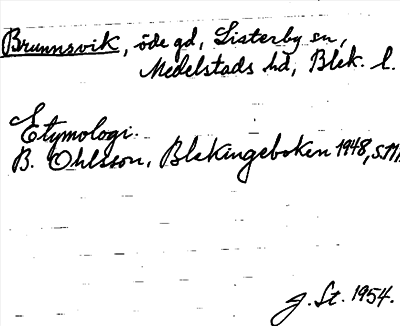 Brunnsvik, öde gd, Listerby sn,
Medelstads hd, Blek. l.
Etymologi.
B. Ohlsson, Blekingeboken 1948, s.
J. St. 1954.